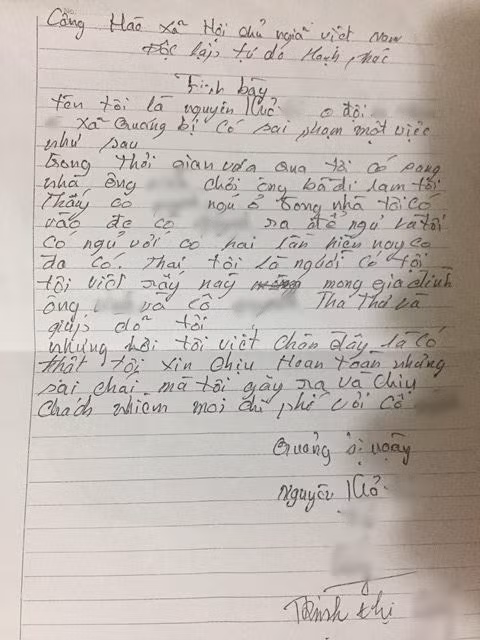 Công Hào xã Hội chủ nghiã việt Nam
Độc lập tự do Hạnh phúc
trình bày
tên tôi là nguyên Khỏ ở đội
xã Quảng bị có sai phạm một việc
như sau
trong thời gian vừa qua tôi có sang
nhà ông chơi ông bà đi làm tôi
Thấy cô ngu ở trong nhà tôi có
vào đe cô ra để ngủ và tôi
có ngủ với cô hai lần hiện nay cô
đa có. Thai tôi là người có tội
tôi viết rấy này mong gia đình
ông và cô Tha Thứ và
giúp đỡ tôi
những lời tôi viết chên đây là có
thật tôi xin chịu Hoan toàn những
sai chái mà tôi gây ra va chịu
chách nhiệm moi chi phí với cô
Quảng bị ngày
Nguyễn Khỏ
Trịnh thị